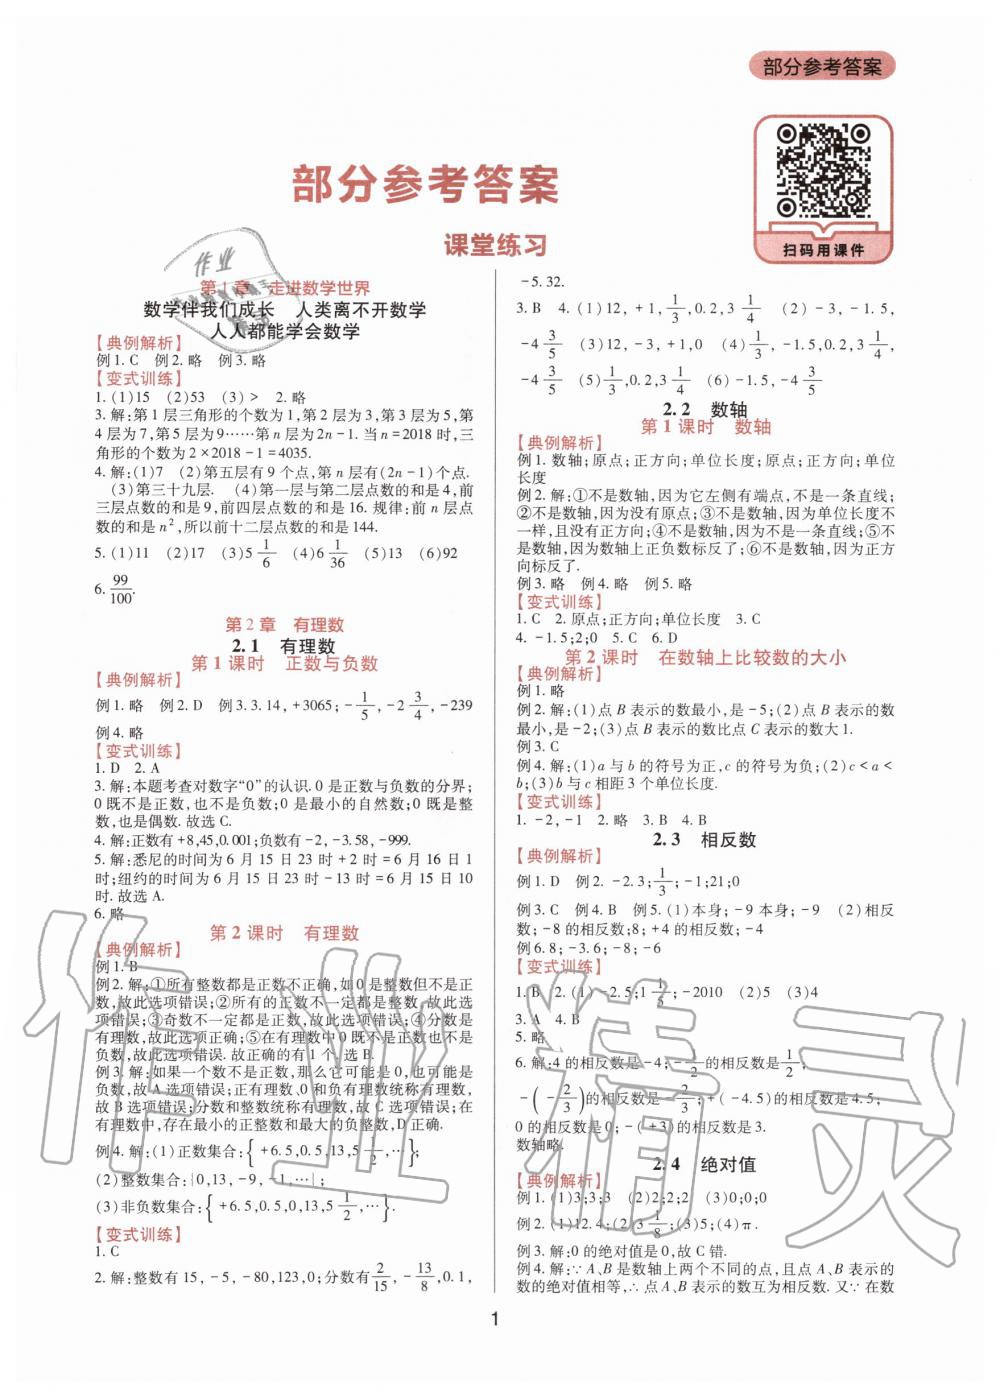 部分参考答案
扫码用课件
部分参考答案
课堂练习
第1章 走进数学世界
数学伴我们成长 人类离不开数学
人人都能学会数学
【典例解析】
例1.C 例2.略 例3.略
【变式训练】
1.(1)15 (2)53 (3)> 2.略
3.解:第1层三角形的个数为1,第2层为3,第3层为5,第
4层为7,第5层为9……第n层为2n-1.当n=2018时,三
角形的个数为2×2018-1=4035.
4.解:(1)7 (2)第五层有9个点,第n层有(2n-1)个点.
(3)第三十九层. (4)第一层与第二层点数的和是4,前
三层点数的和是9,前四层点数的和是16.规律:前n层点
数的和是n²,所以前十二层点数的和是144.
5.(1)11 (2)17 (3)5 1/6 (4)6 1/36 (5)13 (6)92
6. 99/100.
第2章 有理数
2.1 有理数
第1课时 正数与负数
【典例解析】
例1.略 例2.D 例3.3.14,+3065;-1/5,-2 3/4,-239
例4.略
【变式训练】
1.D 2.A
3.解:本题考查对数字“0”的认识.0是正数与负数的分界;
0既不是正数,也不是负数;0是最小的自然数;0既是整
数,也是偶数.故选C.
4.解:正数有+8,45,0.001;负数有-2,-3.58,-999.
5.解:悉尼的时间为6月15日23时+2时=6月16日1
时;纽约的时间为6月15日23时-13时=6月15日10
时.故选A.
6.略
第2课时 有理数
【典例解析】
例1.B
例2.解:①所有整数都是正数不正确,如0是整数但不是正
数,故此选项错误;②所有的正数不一定都是整数,故此选
项错误;③奇数不一定是正数,故此选项错误;④分数是
有理数,故此选项正确;⑤在有理数中0既不是正数也不是
负数,故此选项错误.故正确的有1个,选B.
例3.解:如果一个数不是正数,那么它可能是0,也可能是
负数,故A选项错误;正有理数、0和负有理数统称有理数,
故B选项错误;分数和整数统称有理数,故C选项错误;在
有理数中,存在最小的正整数和最大的负整数,D正确.
例4.解:(1)正数集合:{+6.5,0.5,13,5 1/2,…};
(2)整数集合:{0,13,-9,-1,…};
(3)非负数集合:{+6.5,0.5,0,13,5 1/2,…}.
【变式训练】
1.C
2.解:整数有15,-5,-80,123,0;分数有2/15,-13/8,0.1,
-5.32.
3.B 4.(1)12,+1,1/3,0.2,3 1/4 (2)-3,-1.5,
-4 3/5 (3)12,-3,+1,0 (4)1/3,-1.5,0.2,3 1/4,
-4 3/5 (5)1/3,0.2,3 1/4 (6)-1.5,-4 3/5
2.2 数轴
第1课时 数轴
【典例解析】
例1.数轴;原点;正方向;单位长度;原点;正方向;单位
长度
例2.解:①不是数轴,因为它左侧有端点,不是一条直线;
②不是数轴,因为没有原点;③不是数轴,因为单位长度不
一样,且没有正方向;④不是数轴,因为不是一条直线;⑤不
是数轴,因为数轴上正负数标反了;⑥不是数轴,因为正方
向标反了.
例3.略 例4.略 例5.略
【变式训练】
1.C 2.原点;正方向;单位长度 3.C
4.-1.5;2;0 5.C 6.D
第2课时 在数轴上比较数的大小
【典例解析】
例1.略
例2.解:(1)点B表示的数最小,是-5;(2)点B表示的数
最小,是-2;(3)点B表示的数比点C表示的数大1.
例3.C
例4.解:(1)a与b的符号为正,c的符号为负;(2)c<a<
b;(3)b与c相距3个单位长度.
【变式训练】
1.-2,-1 2.略 3.B 4.B
2.3 相反数
【典例解析】
例1.D 例2.-2.3;1/3;-1;21;0
例3.C 例4.B 例5.(1)本身;-9本身;-9 (2)相反
数;-8的相反数;8;+4的相反数;-4
例6.8;-3.6;-8;-6
【变式训练】
1.B 2.(1)-2.5;1 1/5;-2010 (2)5 (3)4
3.A 4.B
5.略
6.解:4的相反数是-4;-1/2的相反数是1/2;
-(-2/3)的相反数是-2/3;+(-4.5)的相反数是4.5;
0的相反数是0;-(+3)的相反数是3.
数轴略.
2.4 绝对值
【典例解析】
例1.(1)3;3;3 (2)2;2;2 (3)0;0;0
例2.(1)12.4;(2)3 1/8;(3)5;(4)π.
例3.解:0的绝对值是0,故C错.
例4.解:∵A、B是数轴上两个不同的点,且点A、B表示的
数的绝对值相等,∴点A、B表示的数互为相反数.又∵在数
1
作业精灵